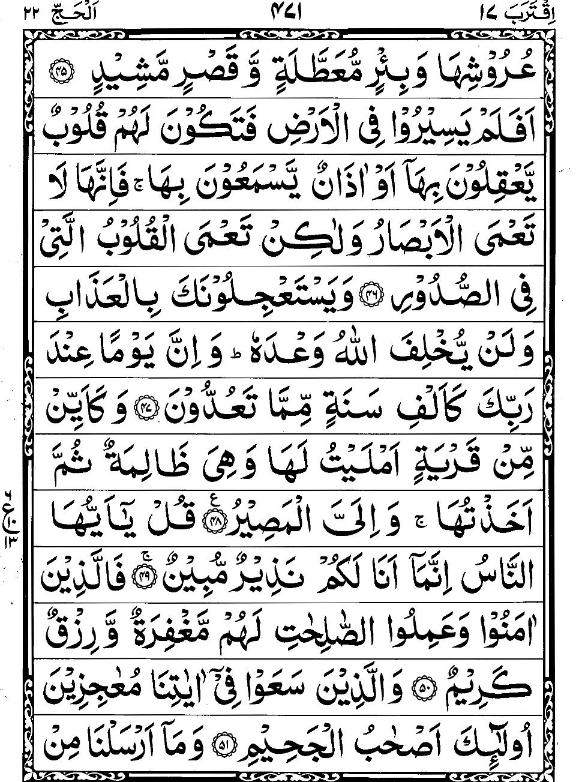 اِقْتَرَبَ ١٧ ٤٧١ اَلْحَجّ ٢٢
عُرُوْشِهَا وَ بِئْرٍ مُّعَطَّلَةٍ وَّ قَصْرٍ مَّشِيْدٍ ﴿٤٥﴾
اَفَلَمْ يَسِيْرُوْا فِى الْاَرْضِ فَتَكُوْنَ لَهُمْ قُلُوْبٌ
يَّعْقِلُوْنَ بِهَاۤ اَوْ اٰذَانٌ يَّسْمَعُوْنَ بِهَا ۚ فَاِنَّهَا لَا
تَعْمَى الْاَبْصَارُ وَلٰكِنْ تَعْمَى الْقُلُوْبُ الَّتِىْ
فِى الصُّدُوْرِ ﴿٤٦﴾ وَيَسْتَعْجِلُوْنَكَ بِالْعَذَابِ
وَلَنْ يُّخْلِفَ اللّٰهُ وَعْدَهٗ ؕ وَاِنَّ يَوْمًا عِنْدَ
رَبِّكَ كَاَلْفِ سَنَةٍ مِّمَّا تَعُدُّوْنَ ﴿٤٧﴾ وَكَاَيِّنْ
مِّنْ قَرْيَةٍ اَمْلَيْتُ لَهَا وَهِىَ ظَالِمَةٌ ثُمَّ
اَخَذْتُهَا ۚ وَاِلَىَّ الْمَصِيْرُ ﴿٤٨﴾ ع قُلْ يٰۤاَيُّهَا
النَّاسُ اِنَّمَاۤ اَنَا لَكُمْ نَذِيْرٌ مُّبِيْنٌ ۚ ﴿٤٩﴾ فَالَّذِيْنَ
اٰمَنُوْا وَعَمِلُوا الصّٰلِحٰتِ لَهُمْ مَّغْفِرَةٌ وَّ رِزْقٌ
كَرِيْمٌ ﴿٥٠﴾ وَالَّذِيْنَ سَعَوْا فِىْۤ اٰيٰتِنَا مُعٰجِزِيْنَ
اُولٰٓئِكَ اَصْحٰبُ الْجَحِيْمِ ﴿٥١﴾ وَمَاۤ اَرْسَلْنَا مِنْ